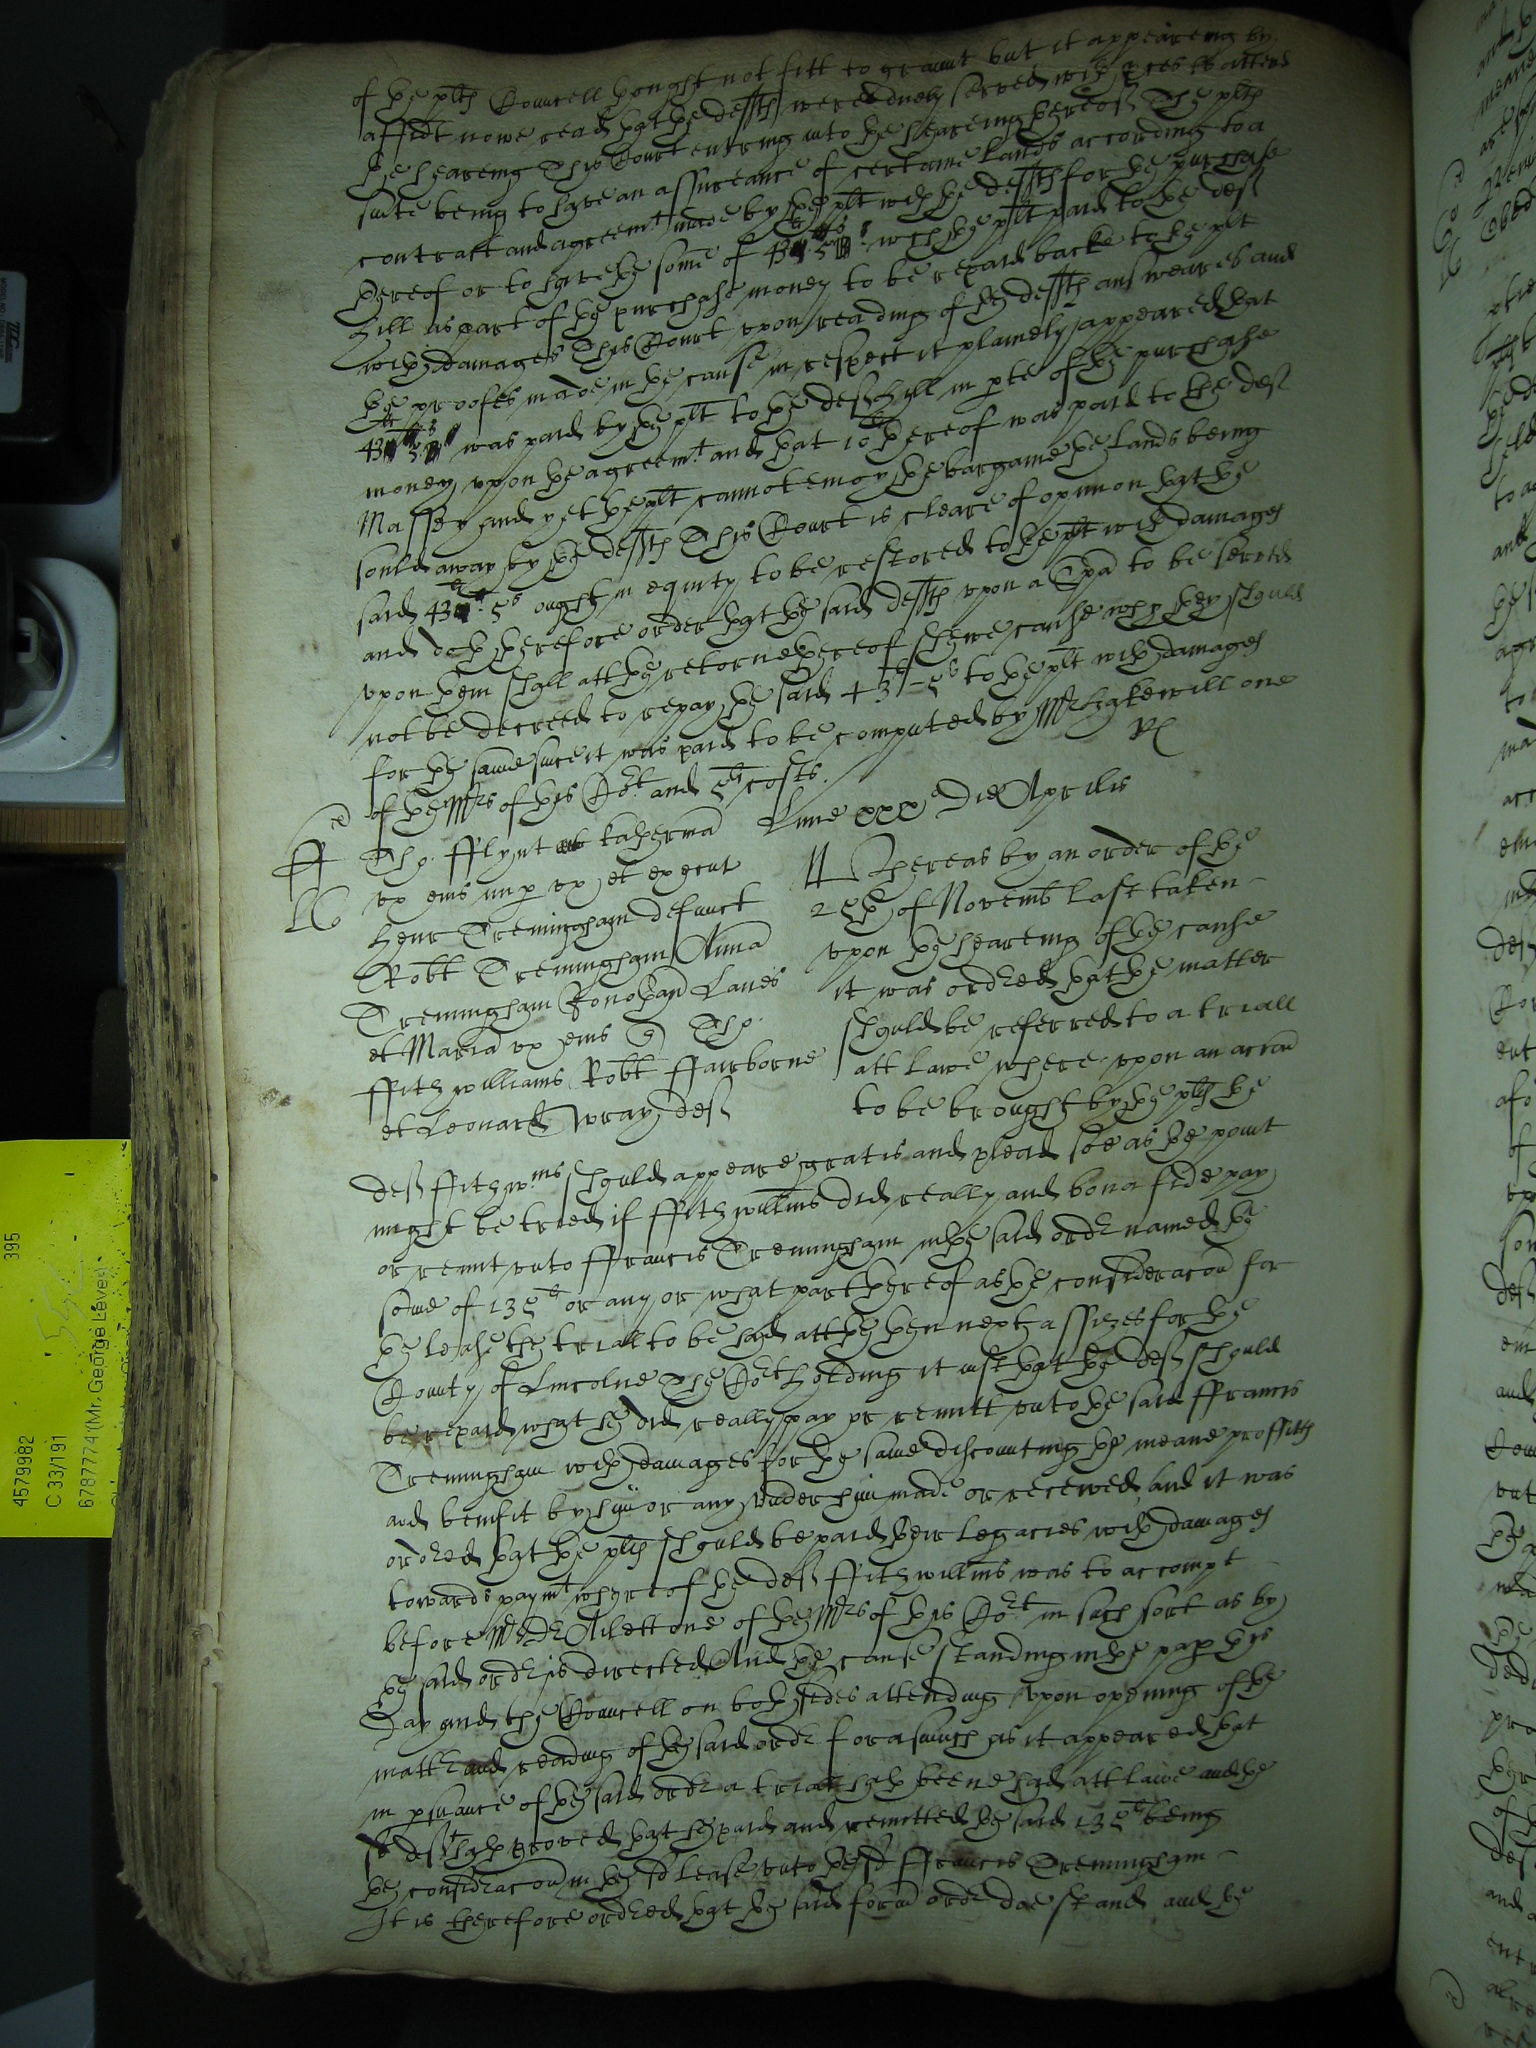 of the plts Councell thought not fitt to graunt but it appeareing by
affidt nowe read that the defts were duely served with pces to attend
the heareing This Court entring into the heareing thereof The plts
suite being to have an assureance of certaine lands according to a
contract and agreemt made by the plt with the defts for the purchase
thereof or to have the some of 43li 5s wch the plt paid to the deft
Hill as part of the purchase money to be repaid backe to the plt
with damages This Court upon reading of the defts answeares and
the proofes made in the cause in respect it plainely appeared that
43li 5s was paid by the plt to the deft Hill in pte of the purchase
money upon the agreemt and that 10li thereof was paid to the deft
Massey and yet the plt cannot enioy the bargaine the lands being
sould away by the defts This Court is cleare of opinion that the
said 43li 5s ought in equity to be restored to the plt with damages
and doth therefore order that the said defts upon a Spa to be served
upon them shall att the retorne thereof shewe cause why they should
not be decreed to repay the said 43li - 5s to the plt with damages
for the same since it was paid to be computed by Mr Hakewill one
of the Mrs of this Cort and 5li costs.
Lune xxxo Die Aprilis
Tho. Fflynt et Katherina
ux eius nup ux et execut
Henr Tremingham defunct
Robt Tremingham Anna
Tremingham Jonothan Lanes
et Maria ux eius Tho.
ffitzwilliams Robt ffairborne
et Leonard Wray deft
Whereas by an order of the
25th of Novemb last taken
upon the heareing of the cause
it was ordred that the matter
should be referred to a triall
att lawe where upon an accon
to be brought by the plts the
deft ffitzwms should appeare gratis and plead soe as the point
might be tried if ffitzwillms did really and bona fide pay
or remit unto ffrancis Tremingham in the said ordr named the
some of 135li or any or what part thereof as the consideracon for
the lease the triall to be had att the then next assizes for the
County of Lincolne The Cort holding it iust that the deft should
be repaid what he did really pay or remitt unto the said ffrancis
Tremingham with damages for the same discounting the meane proffitts
and benifit by him or any under him made or received, and it was
ordred that the plts should be paid their legacies with damages
towards paymt whereof the deft ffitzwillms was to accompt
before Mr Dr Ailett one of the Mrs of this Cort in such sort as by
the said ordr is directed And the cause standing in the pap this
Day and the Councell on both sides attending upon opening of the
mattr and reading of the said ordr forasmuch as it appeared that
in psuance of the said ordr a triall hath beene had att lawe and the
sd deft hath proved that he paid and remitted the said 135li being
the considracon in the sd lease unto the sd ffrancis Tremingham
It is therefore ordred that the said formr ordr doe stand and the
4579982
395
C 33/191
6787774 (Mr. George Leven